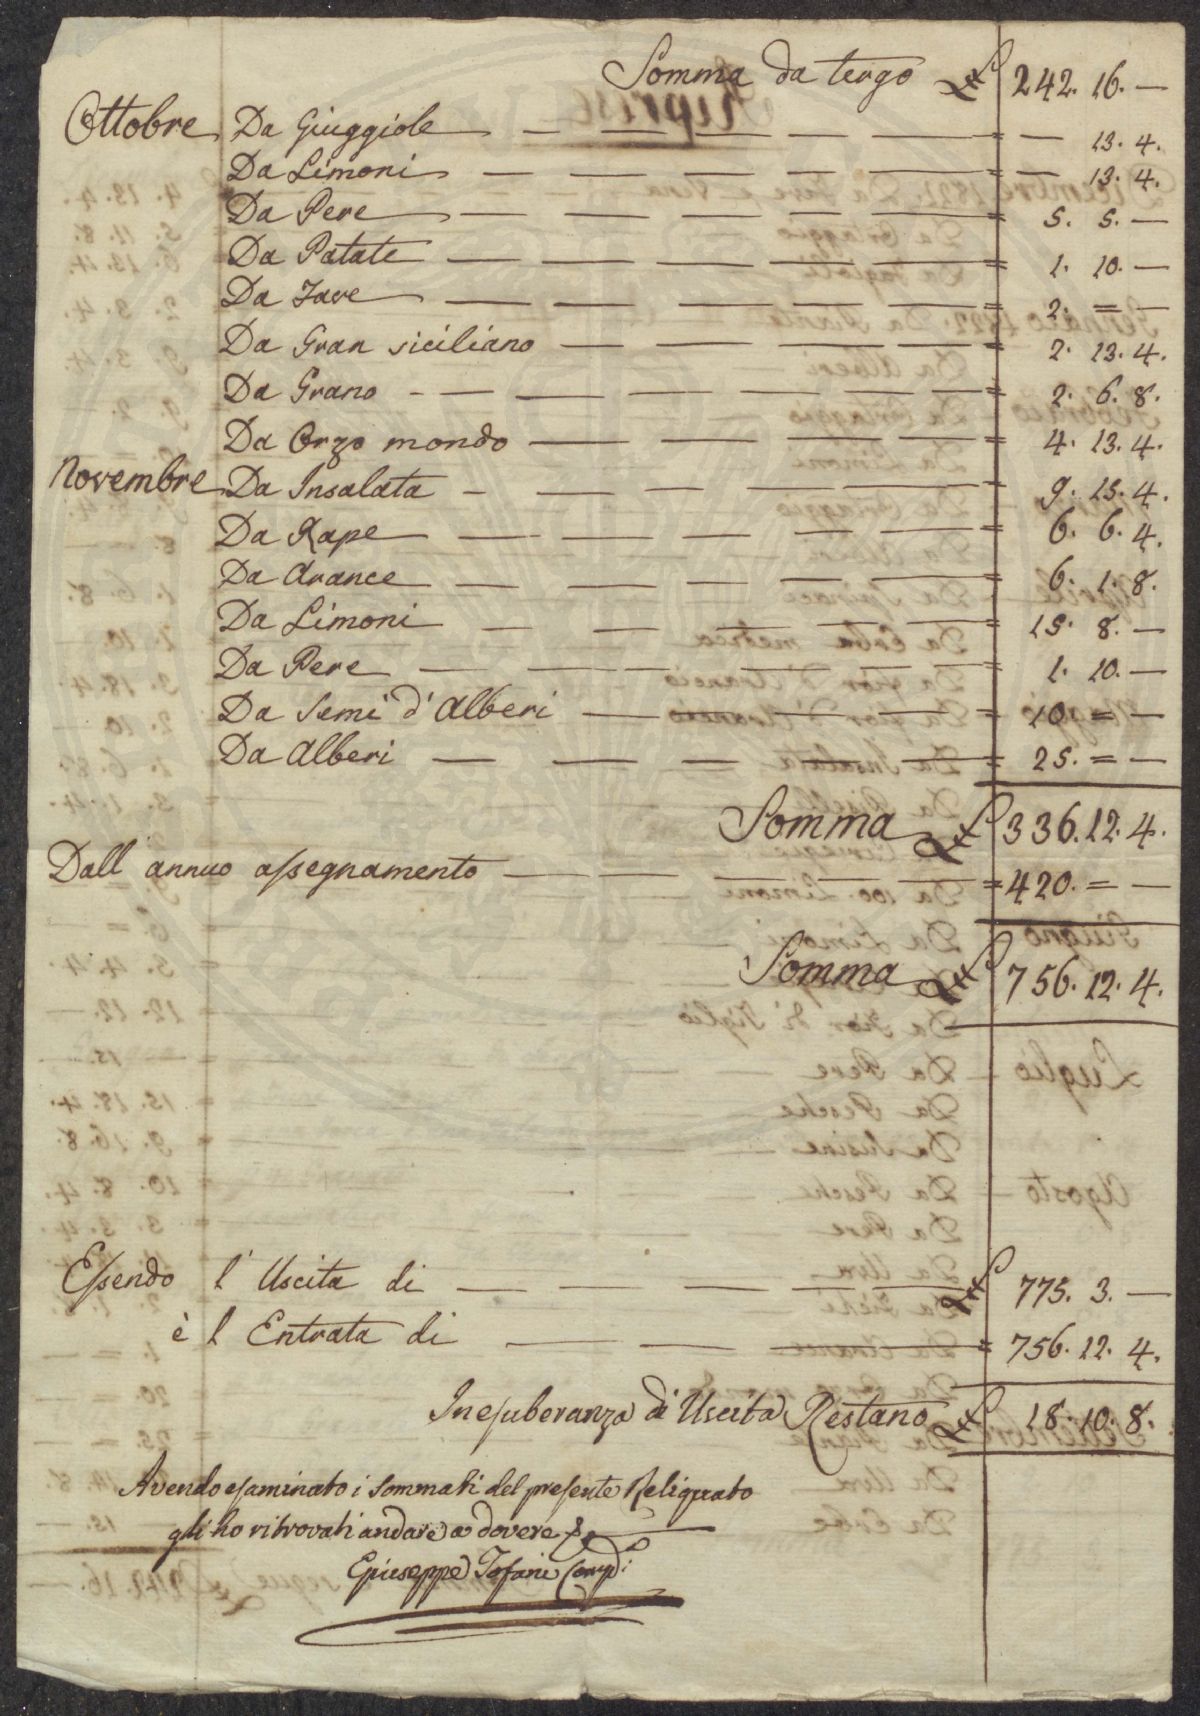 Somma da tergo £ 242. 16. —
Ottobre Da Giuggiole — — — — — = — 13. 4.
Da Limoni — — — — — = — 13. 4.
Da Pere — — — — — = 5. 5. —
Da Patate — — — — — = 1. 10. —
Da Fave — — — — — = 2. = —
Da Gran siciliano — — — — = 2. 13. 4.
Da Grano — — — — — = 2. 6. 8.
Da Orzo mondo — — — — = 4. 13. 4.
Novembre Da Insalata — — — — — = 9. 15. 4.
Da Rape — — — — — = 6. 6. 4.
Da Arance — — — — — = 6. 1. 8.
Da Limoni — — — — — = 15. 8. —
Da Pere — — — — — = 1. 10. —
Da Semi d'Alberi — — — — 10. = —
Da Alberi — — — — — = 25. = —
Somma £ 336. 12. 4.
Dall annuo assegnamento — — — — — = 420. = —
Somma £ 756. 12. 4.
Essendo l'Uscita di — — — — £ 775. 3. —
è l Entrata di — — — — = 756. 12. 4.
In esuberanza di Uscita Restano £ 18. 10. 8.
Avendo esaminato i sommati del presente Reliquato
gli ho ritrovati andare a dovere
Giuseppe Tofani Comp.i